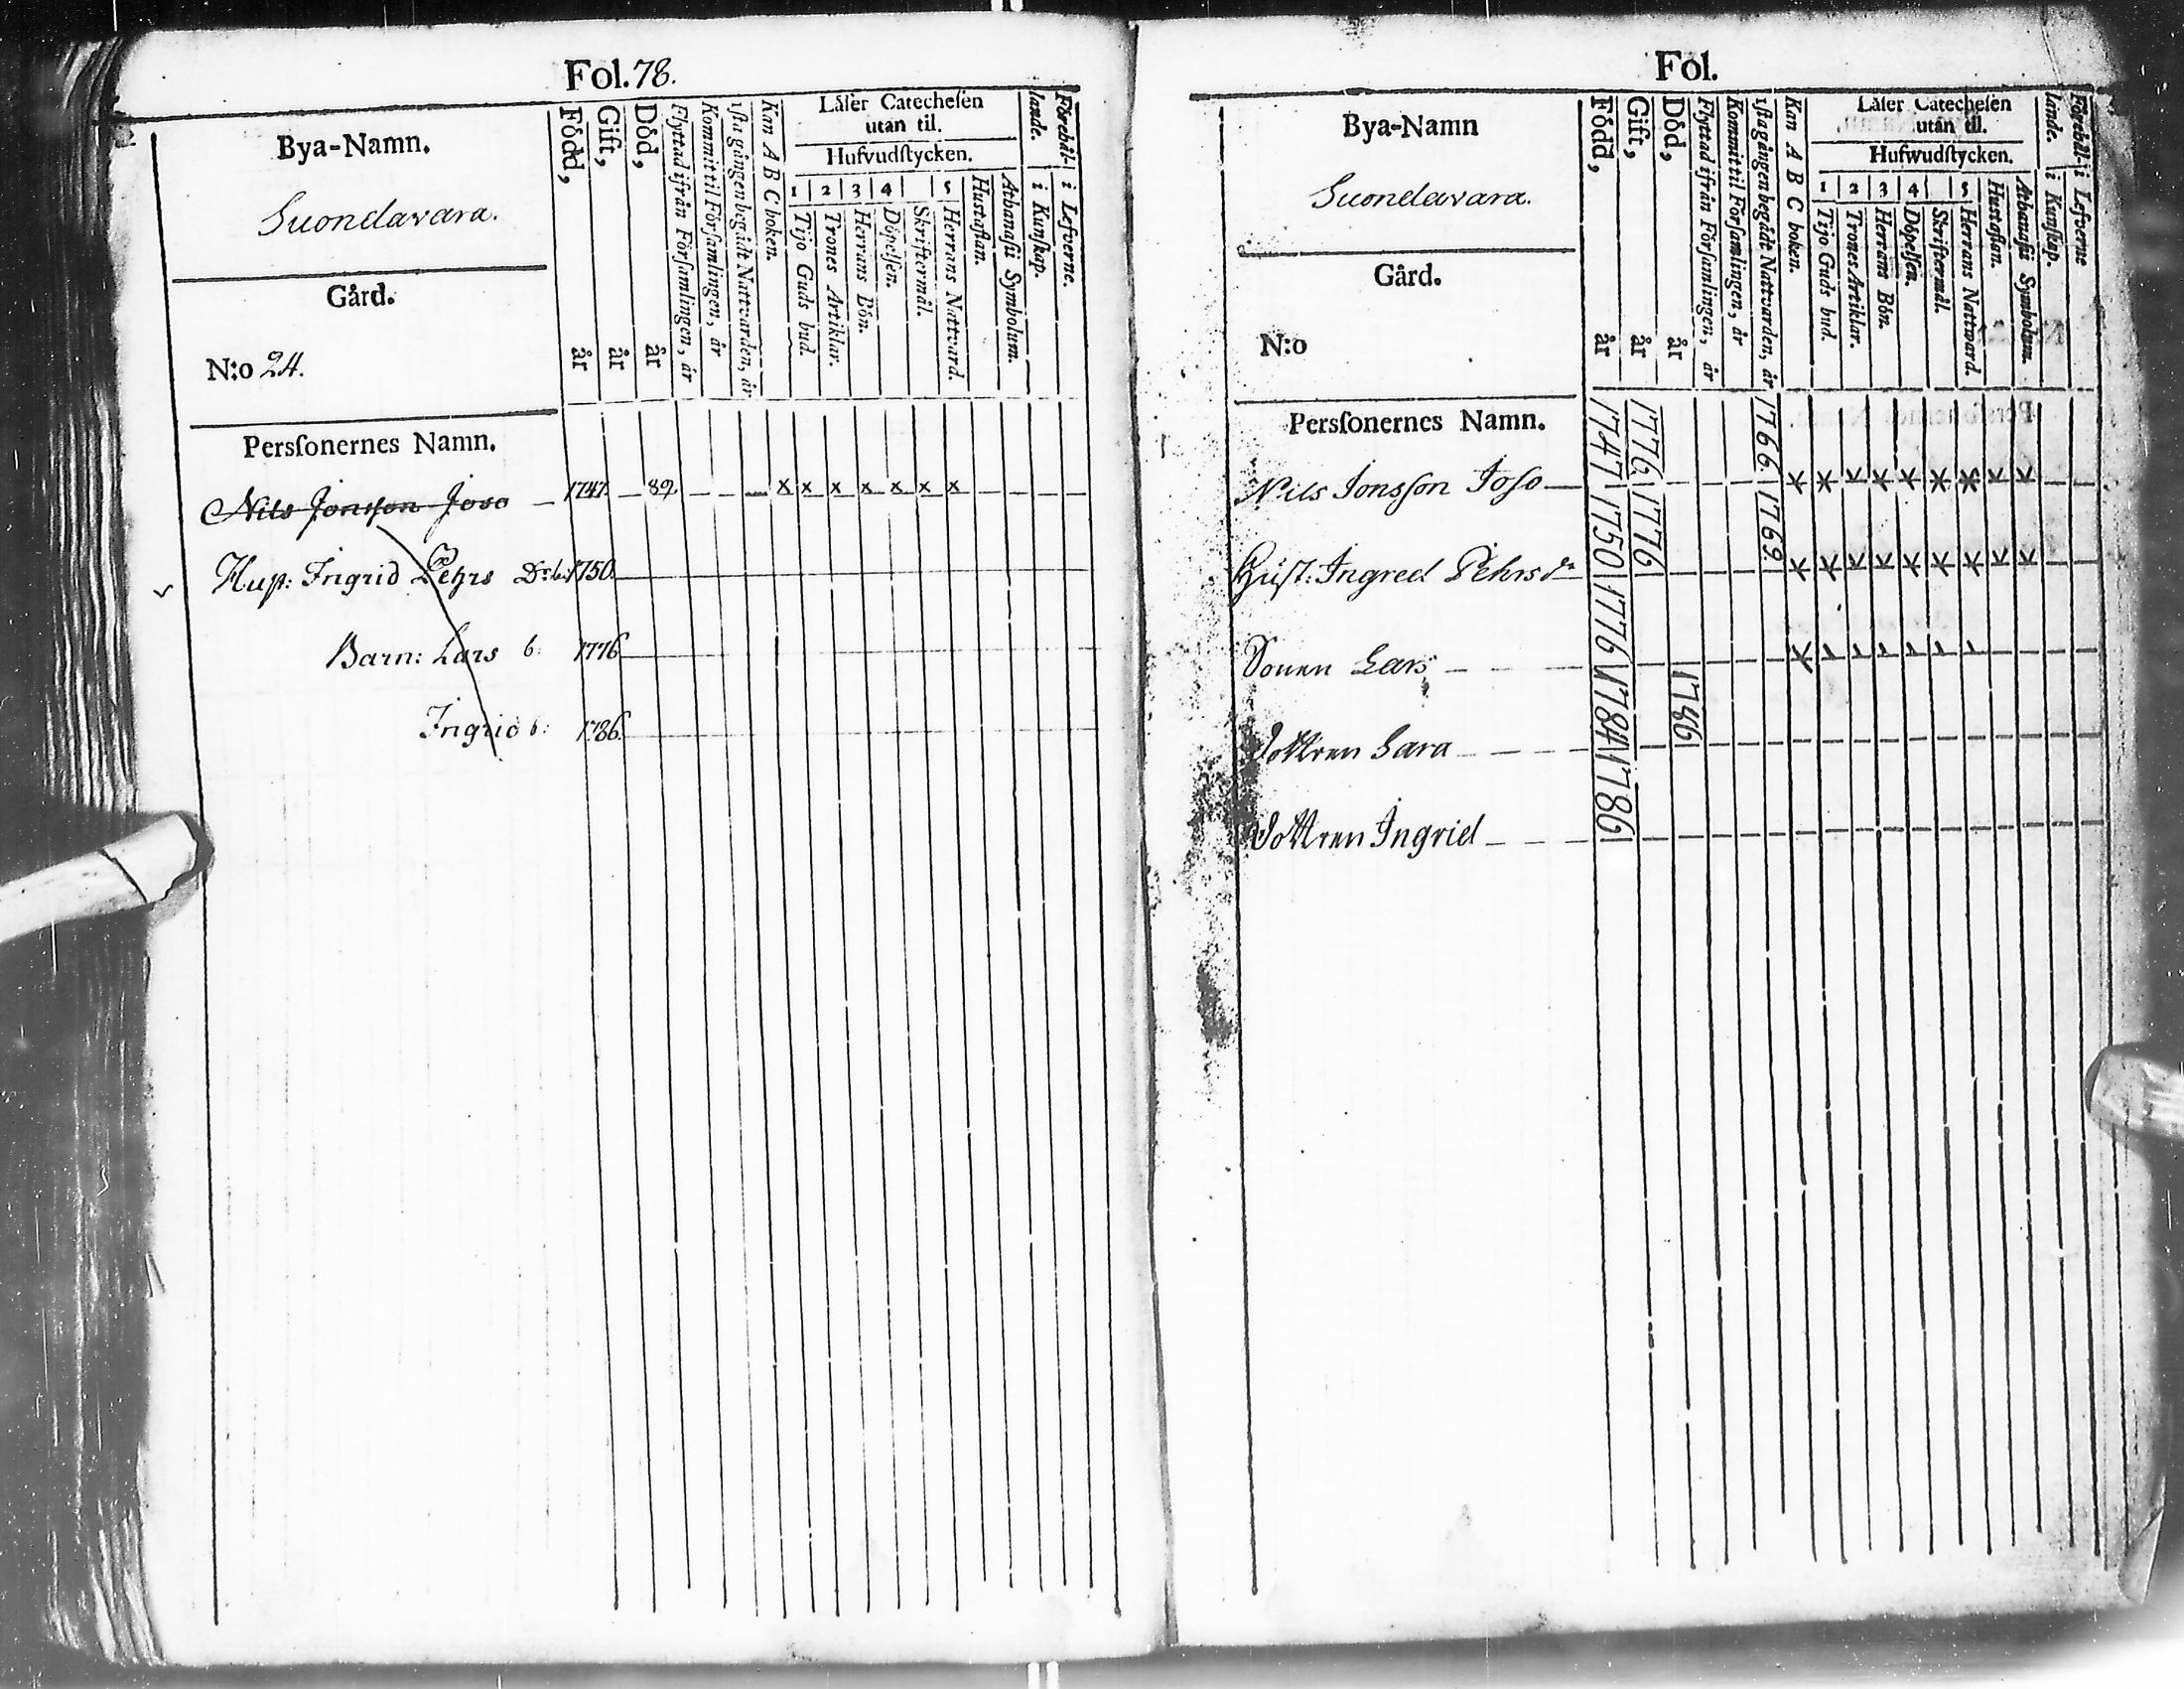 Fol. 78.
Bya-Namn.
Suondavara.
Gård.
N:o 24.
Persſonernes Namn.
Född, år
Gift, år
Död, år
Flyttad ifrån Förſamlingen, år
Kommit til Förſamlingen, år
1ſta gången begådt Nattvarden, år
Kan A B C boken.
Låſer Catecheſen
utan til.
Hufvudſtycken.
1 2 3 4 5
Tijo Guds bud.
Trones Artiklar.
Herrans Bön.
Döpelſen.
Skriftermål.
Herrans Nattvard.
Huſtaflan.
Athanaſii Symbolum.
Förehål-
lande.
i Kunſkap.
i Lefverne.
Nils Jonsson Joso 1747. 89 x x x x x x x
Hust: Ingrid Pehrs Dr b: 1750
Barn: Lars b: 1776
Ingrid b: 1786.
Fol.
Bya-Namn
Suondavara.
Gård.
N:o
Persſonernes Namn.
Född, år
Gift, år
Död, år
Flyttad ifrån Förſamlingen, år
Kommit til Förſamlingen, år
1ſta gången begådt Nattvarden, år
Kan A B C boken.
Låſer Catecheſen
utan til.
Hufwudſtycken.
1 2 3 4 5
Tijo Guds bud.
Trones Artiklar.
Herrans Bön.
Döpelſen.
Skriftermål.
Herrans Nattward.
Huſtaflan.
Athanaſii Symbolum.
Förehål-
lande.
i Kunſkap.
i Lefverne
Nils Jonsſon Joſo 1747 1776 1766 x x x x x x x x x
Huſt: Ingred Pehrs dr 1750 1776 1769 x x x x x x x x x
Sonen Lars 1776 x
Dottren Sara 1784 1786
Dottren Ingrid 1786